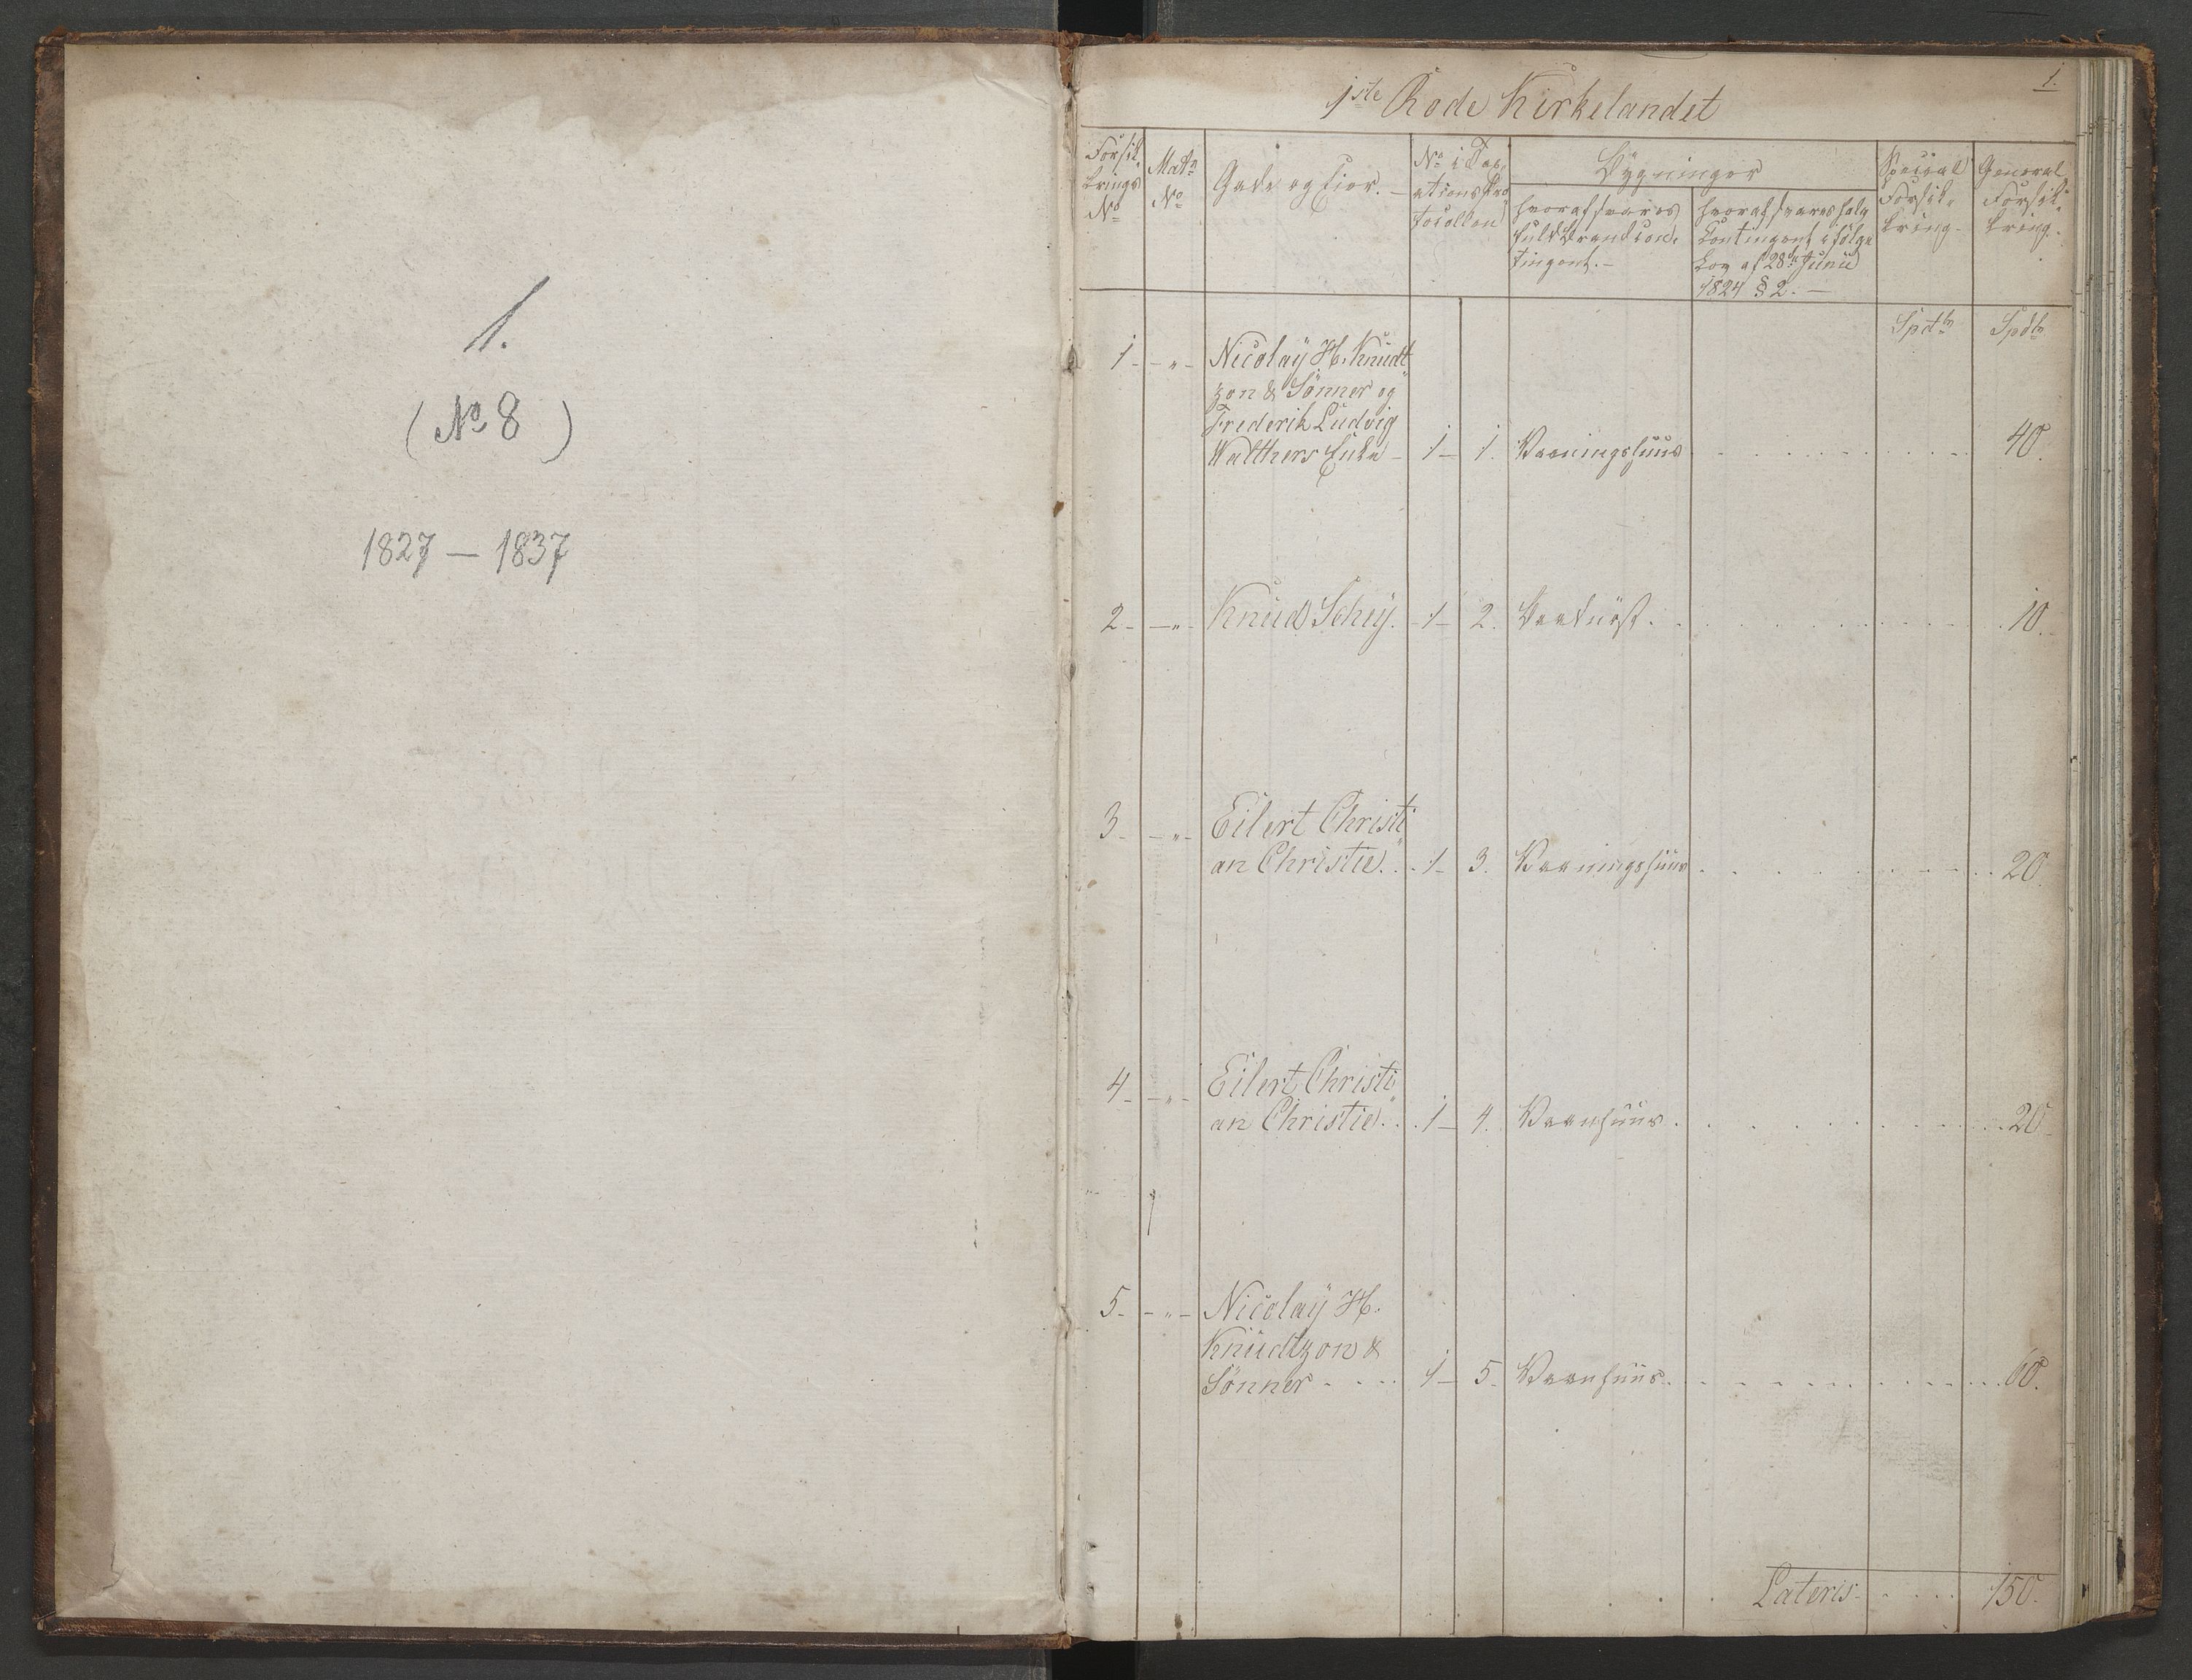 1.
(No 8)
1827 — 1837
1.
1ste Rode Kirkelandet
Forsik-
krings
No
Matr
No
Gade og Eier. -
No i Tax-
ations Pro-
tocollen
Bygninger
hvoraf svares
fuld Brandcon-
tingent. -
hvoraf svares halv
Contingent i følge
Lov af 28de Junii
1824 § 2. -
Special
Forsik-
kring -
General
Forsik-
kring.
Spdlr Spdlr
1 - - " - Nicolaÿ H. Knudt
zon & Sönner og
Frederik Ludvig
Walthers Enke - 1 - 1. Vaaningshuus 40.
2 - - " - Knud Schÿ. - 1 - 2. Baadnöst. 10.
3 - - " - Eilert Christi
an Christie. 1 - 3. Vaaningshuus 20.
4 - - " - Eilert Christi
an Christie. 1 - 4. Vaanhuus. 20
5 - - " - Nicolaÿ H.
Knudtzon &
Sönner 1 - 5. Vaanhuus. 60.
Lateris 150.